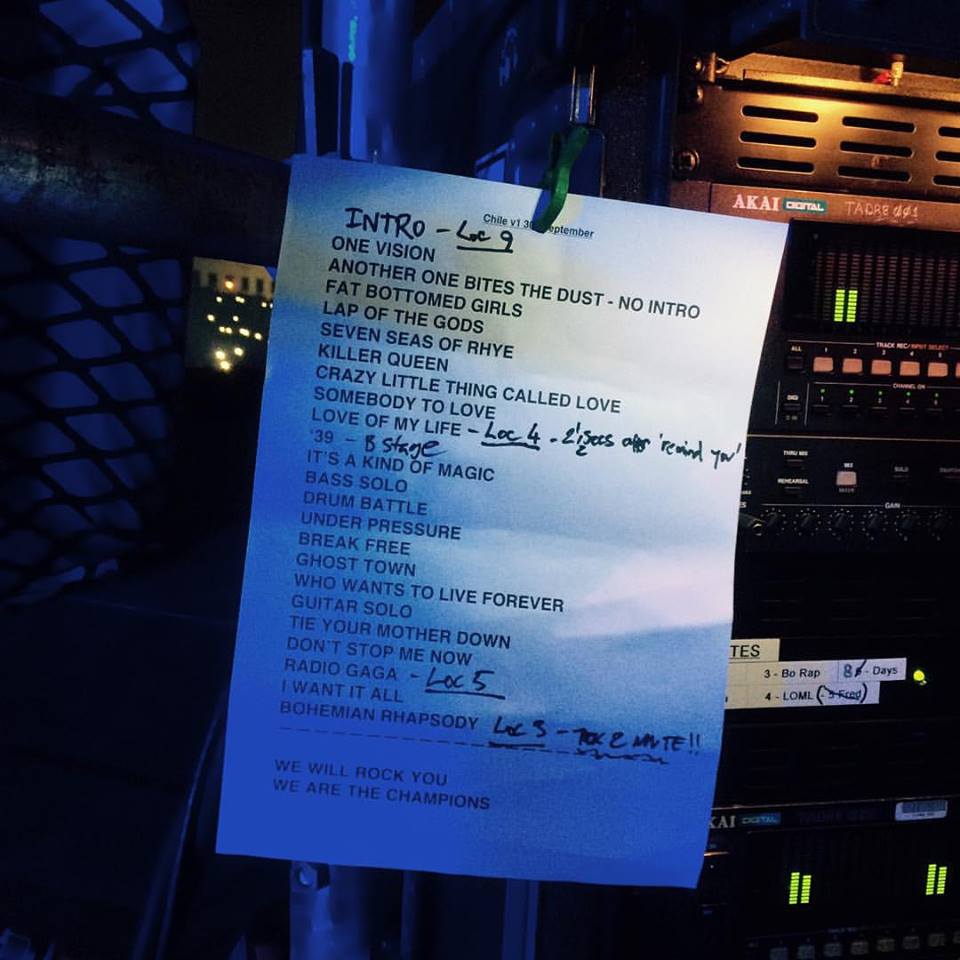 Chile v1 30 September
INTRO - Loc 9
ONE VISION
ANOTHER ONE BITES THE DUST - NO INTRO
FAT BOTTOMED GIRLS
LAP OF THE GODS
SEVEN SEAS OF RHYE
KILLER QUEEN
CRAZY LITTLE THING CALLED LOVE
SOMEBODY TO LOVE
LOVE OF MY LIFE - Loc 4 - 2 1/2 secs 'remind you'
'39 - B Stage
IT'S A KIND OF MAGIC
BASS SOLO
DRUM BATTLE
UNDER PRESSURE
BREAK FREE
GHOST TOWN
WHO WANTS TO LIVE FOREVER
GUITAR SOLO
TIE YOUR MOTHER DOWN
DON'T STOP ME NOW
RADIO GAGA - Loc 5
I WANT IT ALL
BOHEMIAN RHAPSODY Loc 3 - MUTE!!
WE WILL ROCK YOU
WE ARE THE CHAMPIONS
AKAI DIGITAL TADR8 001
TRACK REC/INPUT SELECT
ALL 1 2 3 4 5
CHANNEL ON
THRU MIX
SOLO
REHEARSAL
GAIN
TES
3 - Bo Rap 8 - Days
4 - LOML (- 5 Fred)
KAI DIGITAL